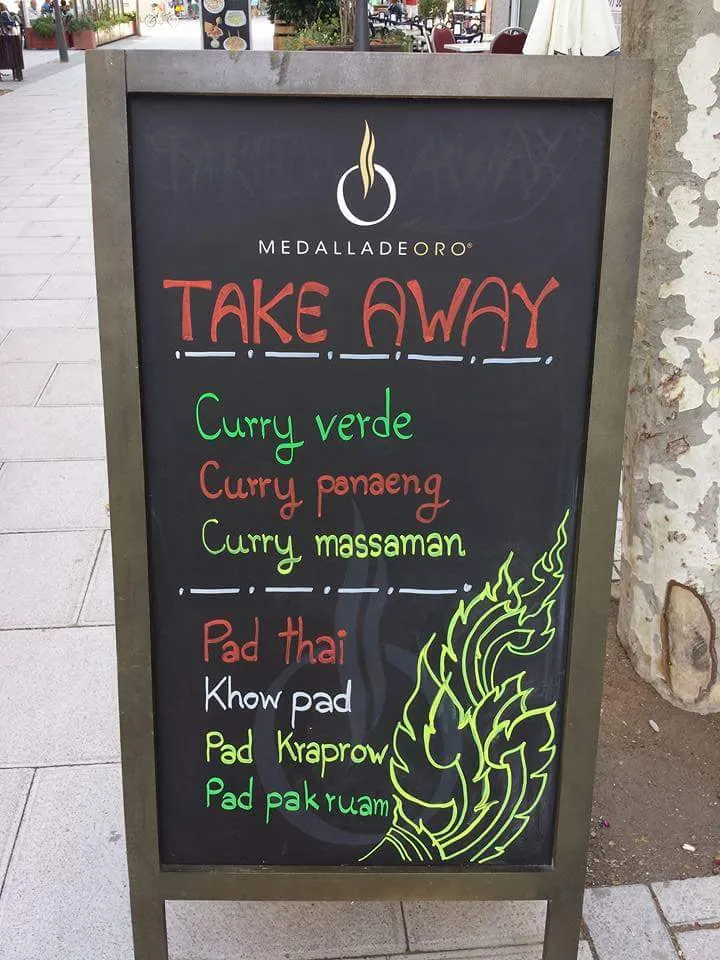 MEDALLADEORO®
TAKE AWAY
Curry verde
Curry panaeng
Curry massaman
Pad thai
Khow pad
Pad Kraprow
Pad pak ruam